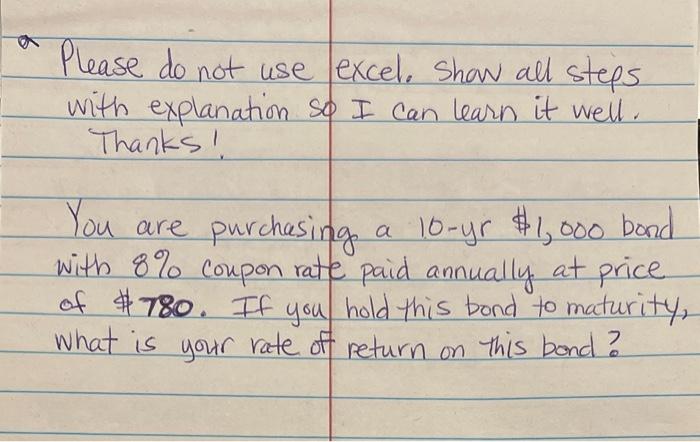 Please do not use excel. Show all steps
with explanation so I can learn it well.
Thanks!
You are purchasing a 10-yr $1,000 bond
with 8% coupon rate paid annually at price
of $780. If you hold this bond to maturity,
what is your rate of return on this bond?